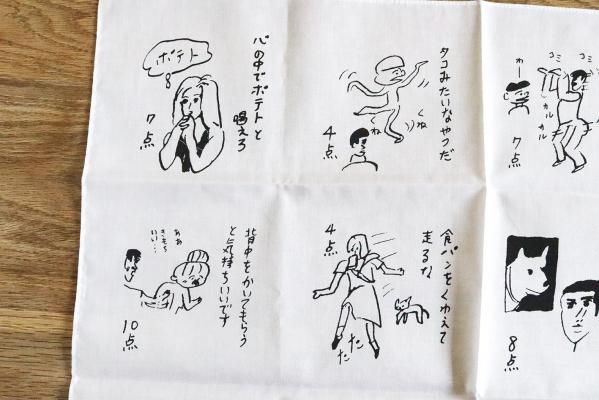 心の中でポテトと
唱えろ
ポテト
7点
タコみたいなやつだ
くね
くね
4点
わー
コミ
コミ
カル
カル
7点
背中をかいてもらう
と気持ちいいです
ああ
きもち
いい…
10点
食パンをくわえて
走るな
4点
たた
た
8点